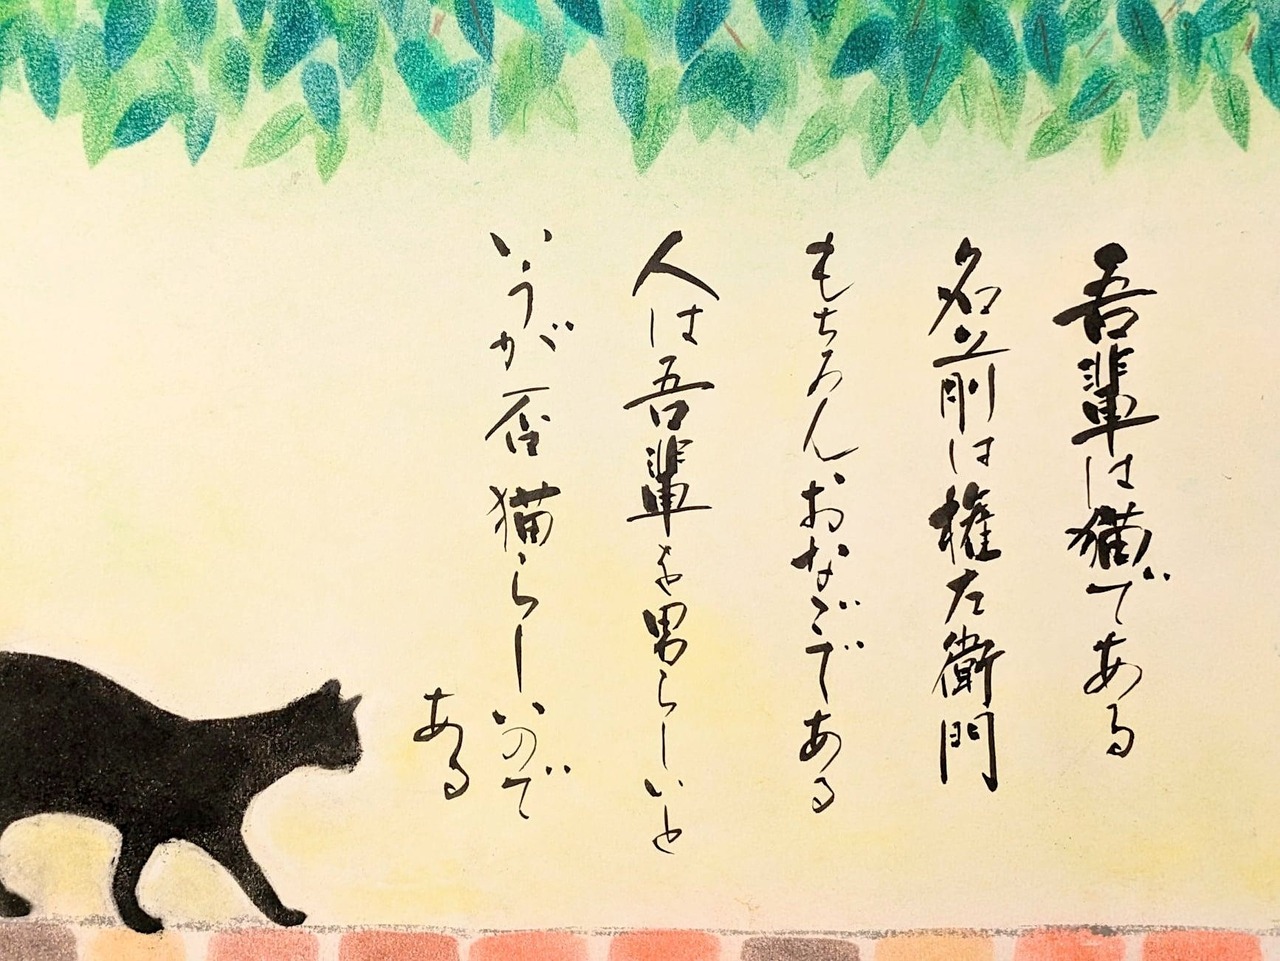 吾輩は猫である
名前は権左衛門
もちろんおなごである
人は吾輩を男らしいと
いうが否猫らしいので
ある